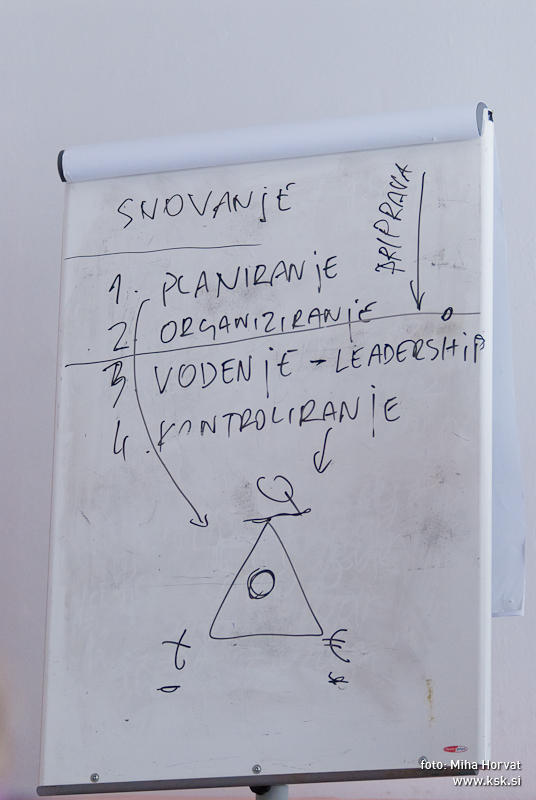 SNOVANjE
PRIPRAVA
1. PLANIRANjE
2. ORGANIZIRANjE
3 VODENjE - LEADERSHiP
4. KONTROLIRANjE
foto: Miha Horvat
www.ksk.si